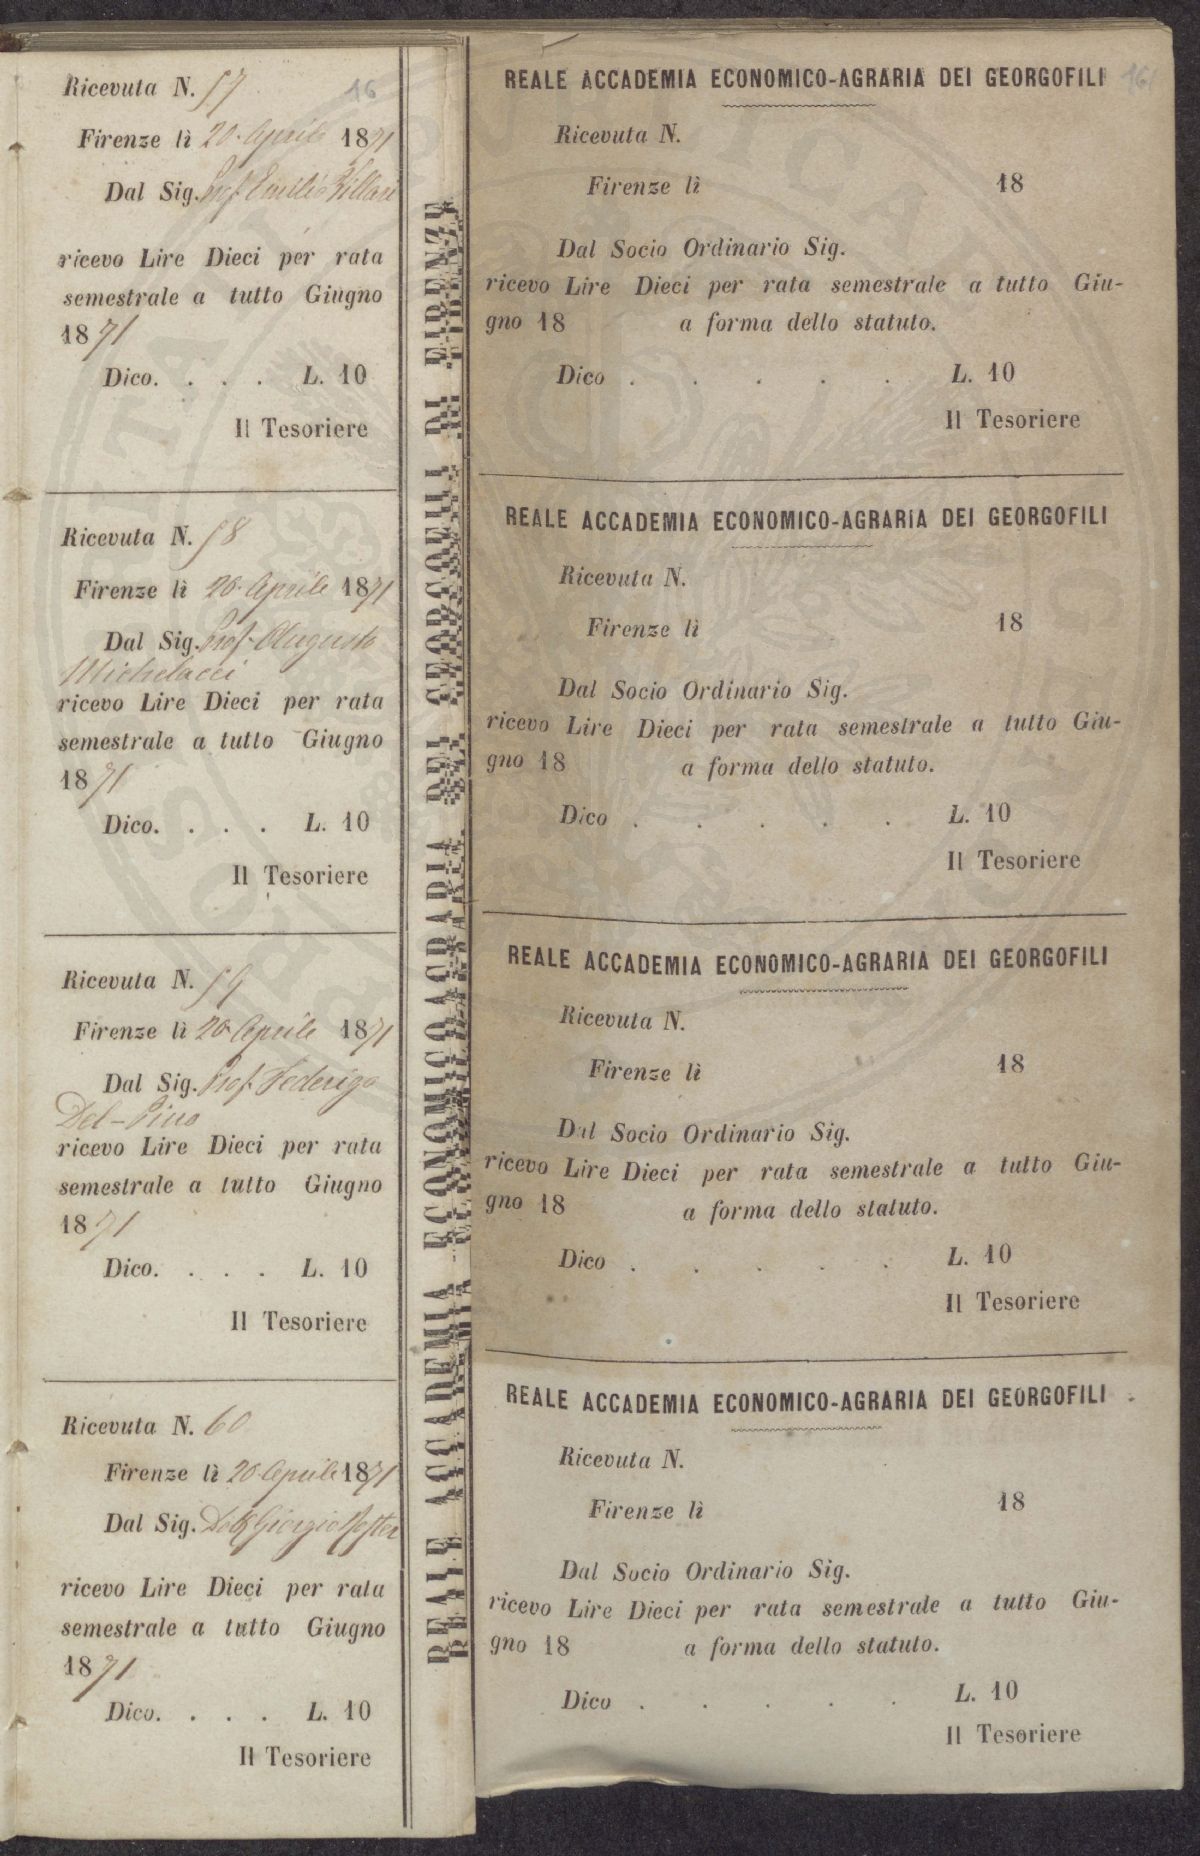 Ricevuta N. 57
16
Firenze lì 20. Aprile 1871
Dal Sig. Prof. Emilio Villari
ricevo Lire Dieci per rata
semestrale a tutto Giugno
1871
Dico. . . . L. 10
Il Tesoriere
Ricevuta N. 58
Firenze lì 20. Aprile 1871
Dal Sig. Prof. Augusto
Michelacci
ricevo Lire Dieci per rata
semestrale a tutto Giugno
1871
Dico. . . . L. 10
Il Tesoriere
Ricevuta N. 59
Firenze lì 20. Aprile 1871
Dal Sig. Prof. Federigo
Del-Pino
ricevo Lire Dieci per rata
semestrale a tutto Giugno
1871
Dico. . . . L. 10
Il Tesoriere
Ricevuta N. 60
Firenze lì 20. Aprile 1871
Dal Sig. Dott. Giorgio Roster
ricevo Lire Dieci per rata
semestrale a tutto Giugno
1871
Dico. . . . L. 10
Il Tesoriere
REALE ACCADEMIA ECONOMICO AGRARIA DEI GEORGOFILI DI FIRENZE
REALE ACCADEMIA ECONOMICO-AGRARIA DEI GEORGOFILI
Ricevuta N.
Firenze lì 18
Dal Socio Ordinario Sig.
ricevo Lire Dieci per rata semestrale a tutto Giu-
gno 18 a forma dello statuto.
Dico . . . . . L. 10
Il Tesoriere
REALE ACCADEMIA ECONOMICO-AGRARIA DEI GEORGOFILI
Ricevuta N.
Firenze lì 18
Dal Socio Ordinario Sig.
ricevo Lire Dieci per rata semestrale a tutto Giu-
gno 18 a forma dello statuto.
Dico . . . . . L. 10
Il Tesoriere
REALE ACCADEMIA ECONOMICO-AGRARIA DEI GEORGOFILI
Ricevuta N.
Firenze lì 18
Dal Socio Ordinario Sig.
ricevo Lire Dieci per rata semestrale a tutto Giu-
gno 18 a forma dello statuto.
Dico . . . . . L. 10
Il Tesoriere
REALE ACCADEMIA ECONOMICO-AGRARIA DEI GEORGOFILI
Ricevuta N.
Firenze lì 18
Dal Socio Ordinario Sig.
ricevo Lire Dieci per rata semestrale a tutto Giu-
gno 18 a forma dello statuto.
Dico . . . . . L. 10
Il Tesoriere